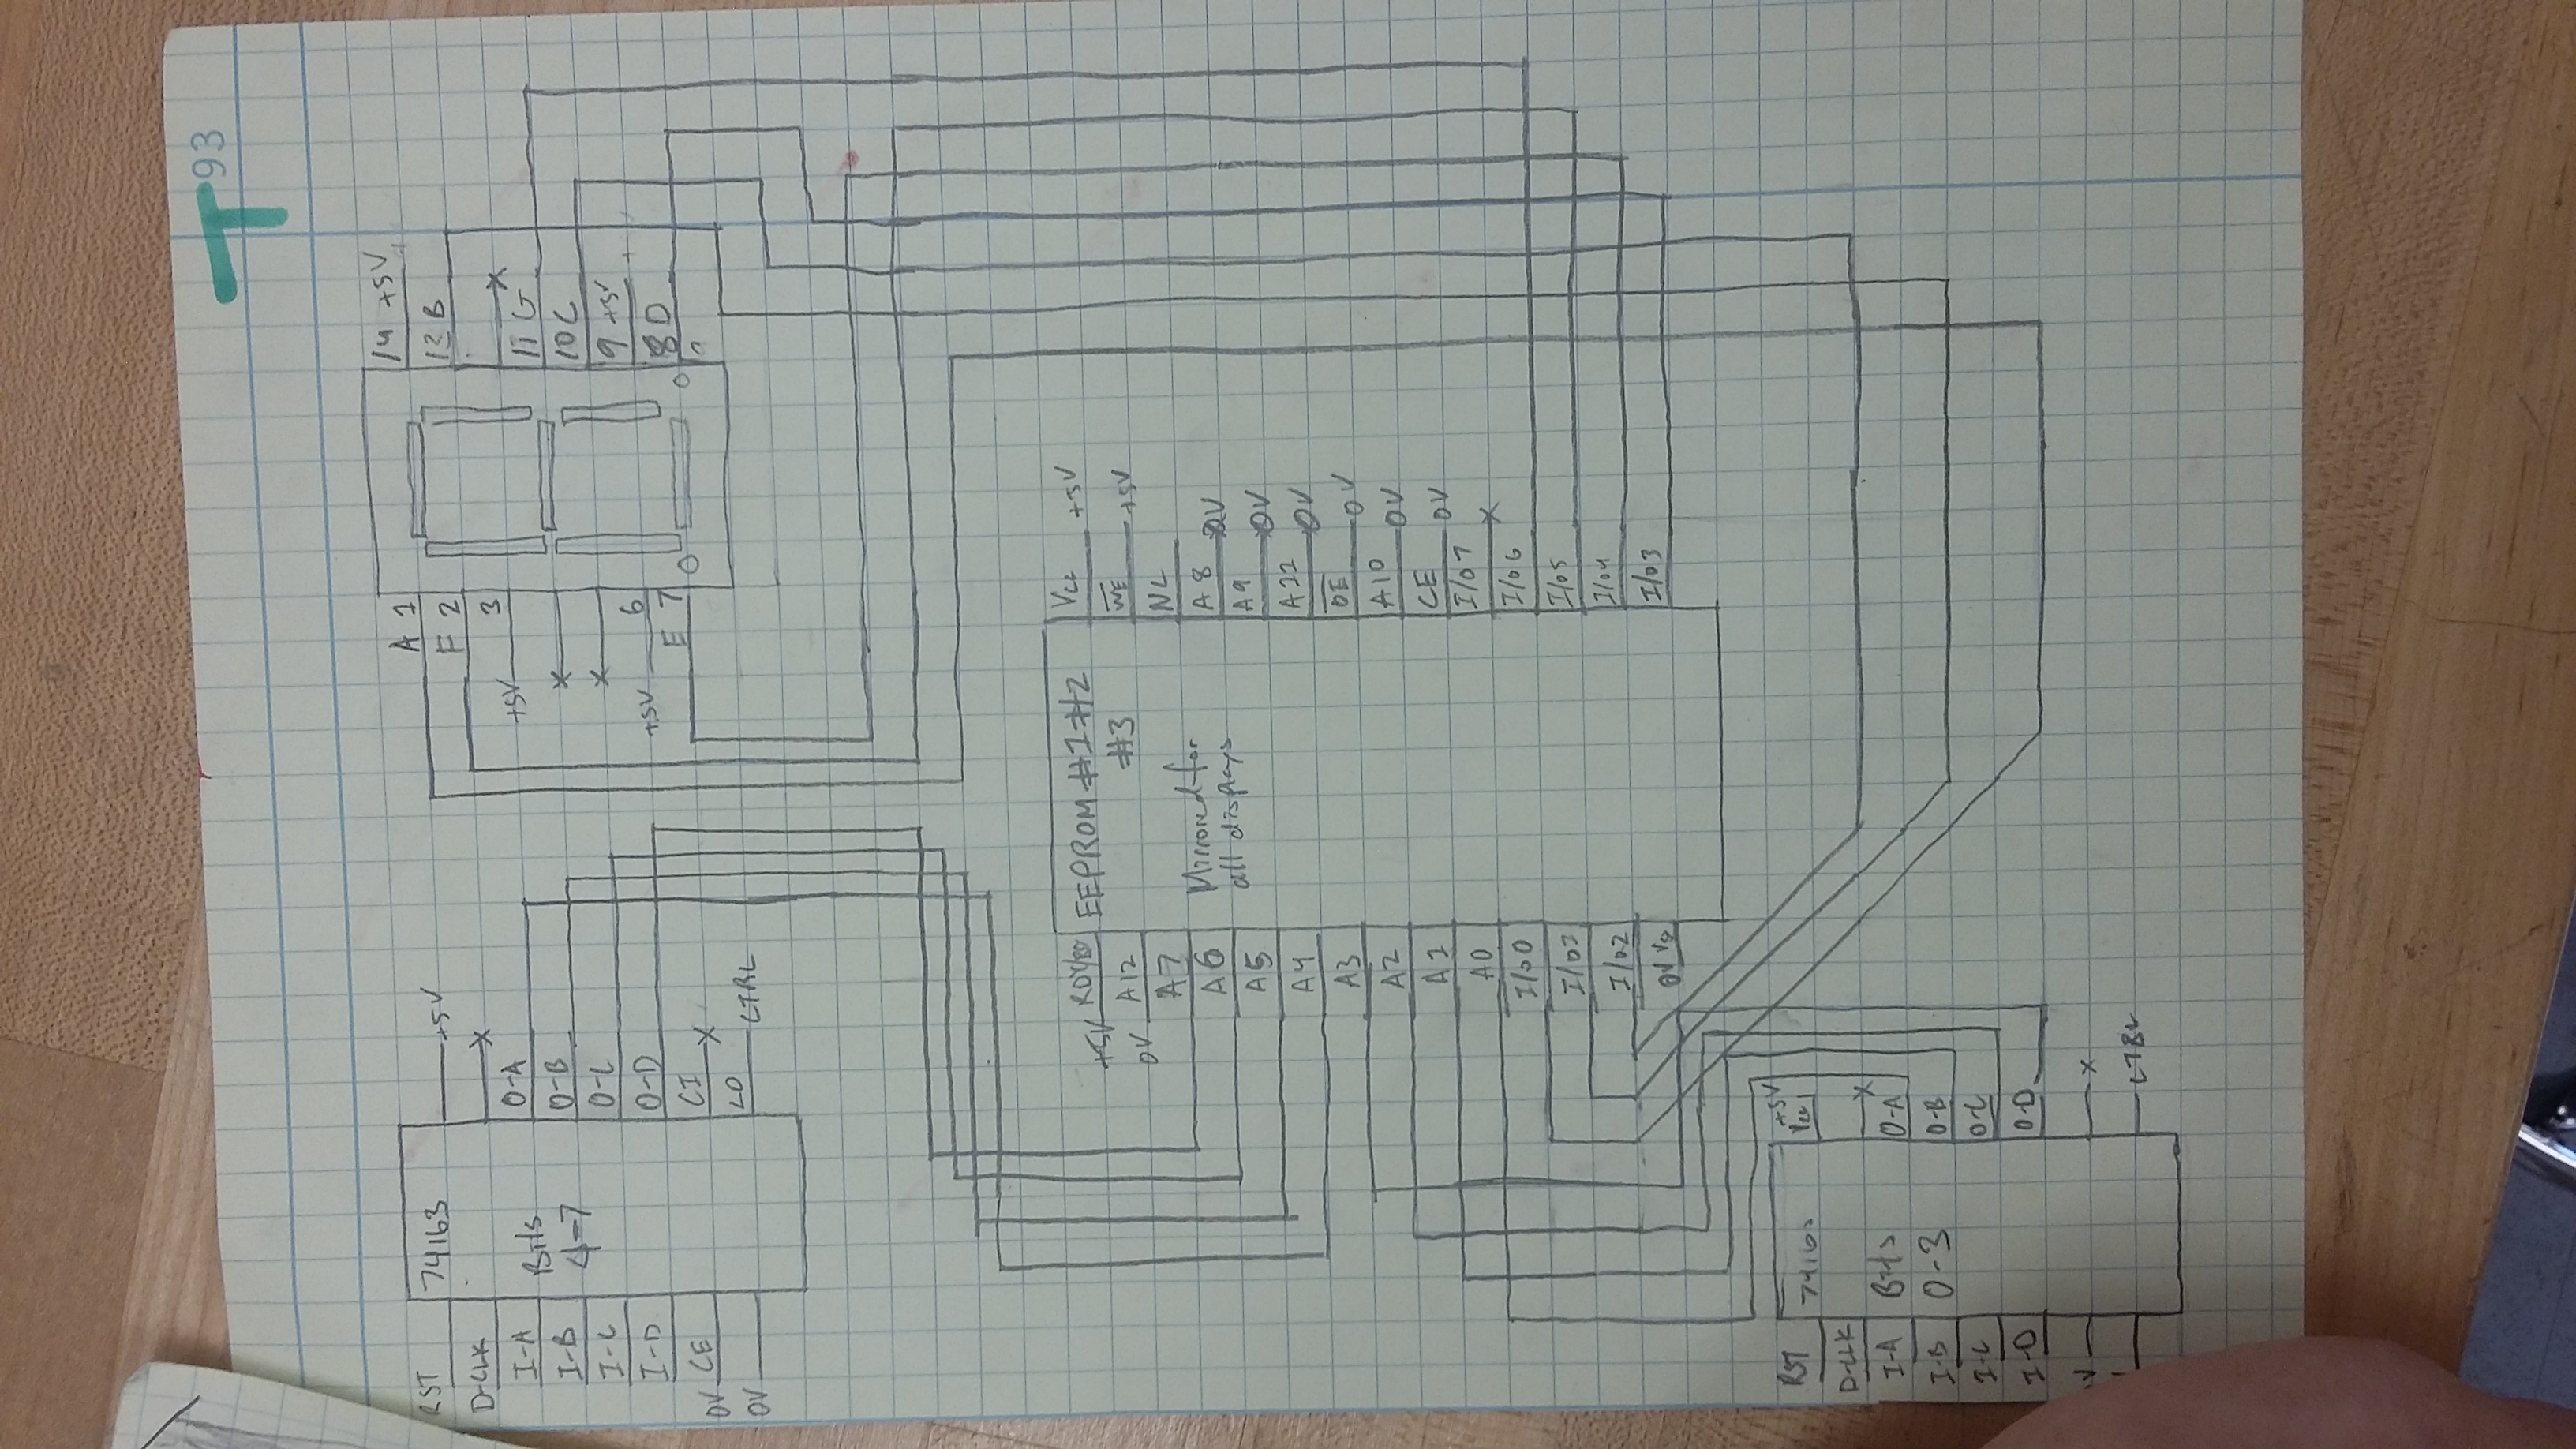 93
RST
D-CLK
I-A
I-B
I-C
I-D
0V CE
0V
74163
Bits
4-7
+5V
X
O-A
O-B
O-C
O-D
CI X
LO CTRL
A 1
F 2
3
+5V
X
X
+5V 6
E 7
14 +5V
13 B
X
11 G
10 C
9 +5V
8 D
+5V
0V A12
A7
A6
A5
A4
A3
A2
A1
A0
I/O0
I/O1
I/O2
0V
EEPROM #1 #2
#3
Mirrored for
all displays
Vcc +5V
WE +5V
NC
A8 0V
A9 0V
A22 0V
OE 0V
A10 0V
CE 0V
I/O7 X
I/O6
I/O5
I/O4
I/O3
RST
D-CLK
I-A
I-B
I-C
I-D
V
74163
Bits
0-3
+5V
Vcc
X
O-A
O-B
O-C
O-D
X
CTRL